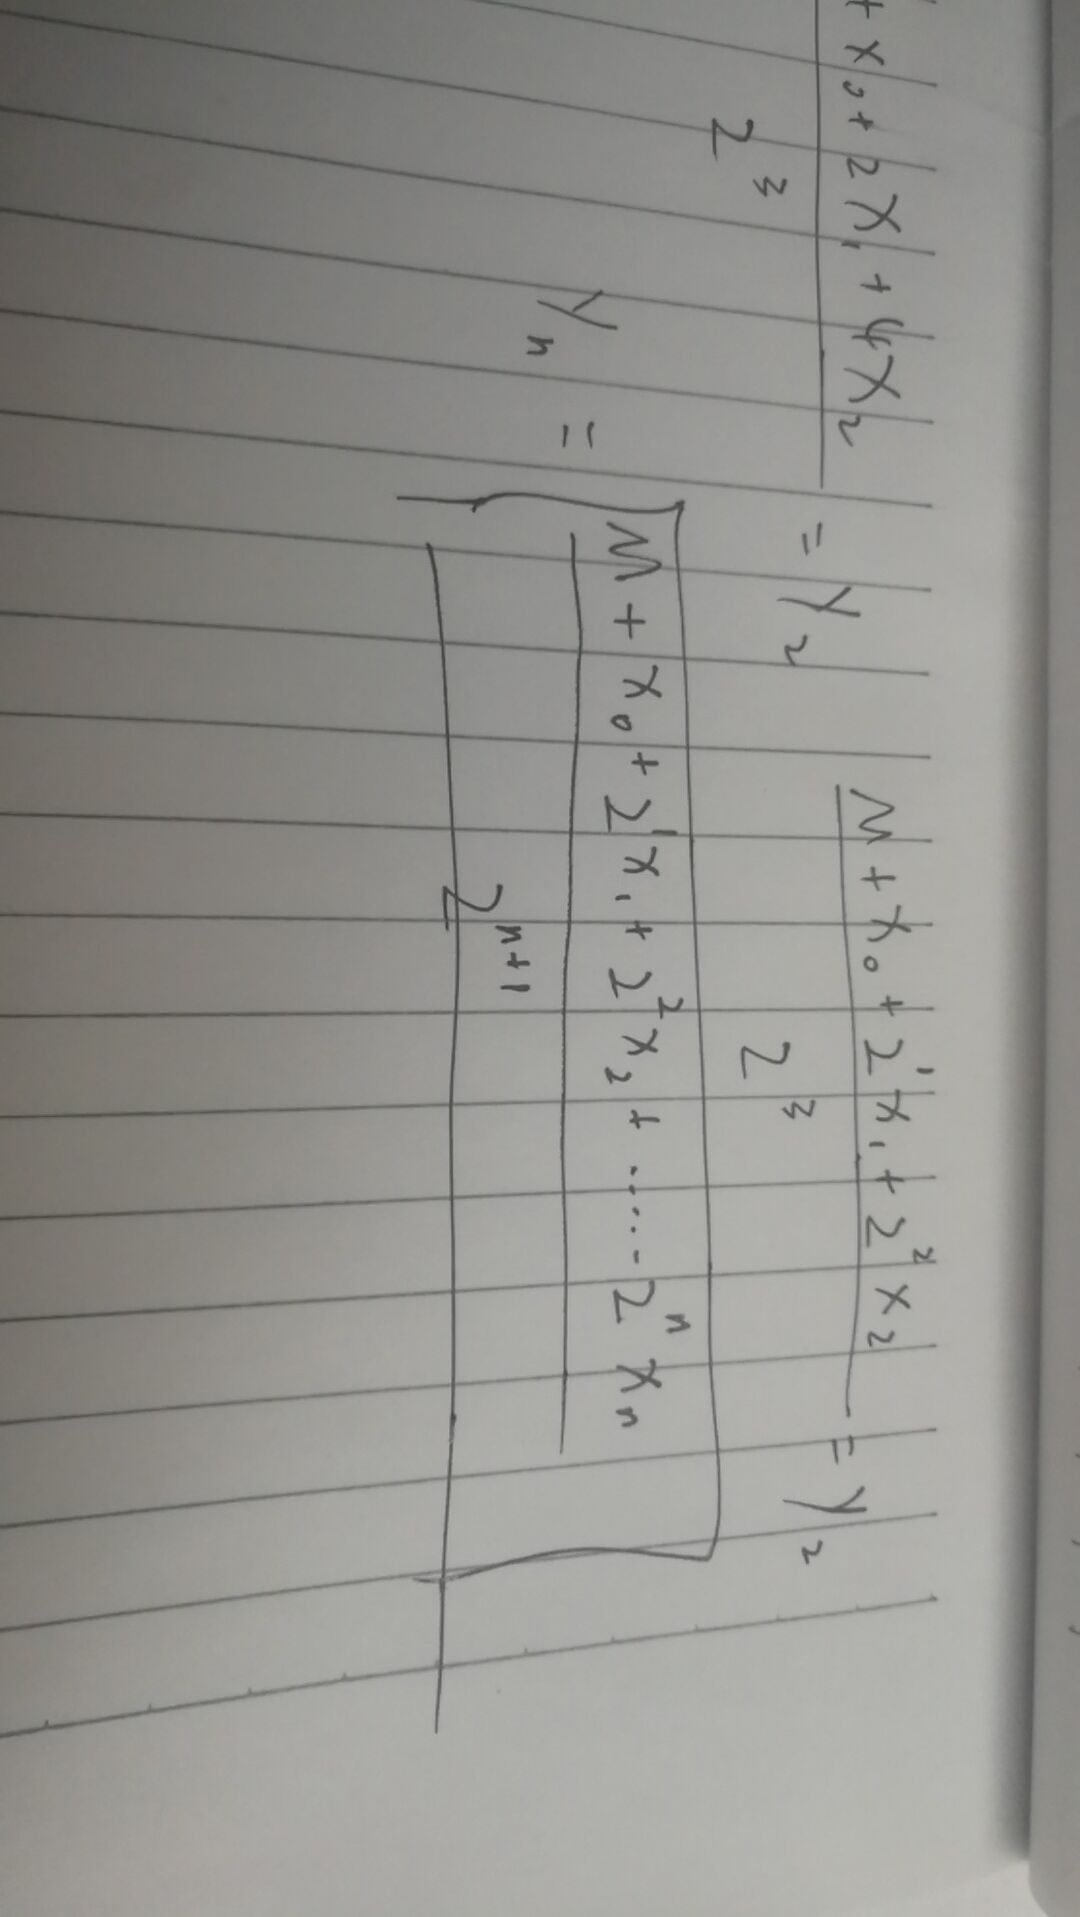 + x₀ + 2x₁ + 4x₂ / 2³ = y₂
M + x₀ + 2¹x₁ + 2²x₂ / 2³ = y₂
yₙ = M + x₀ + 2¹x₁ + 2²x₂ + ..... 2ⁿxₙ / 2ⁿ⁺¹